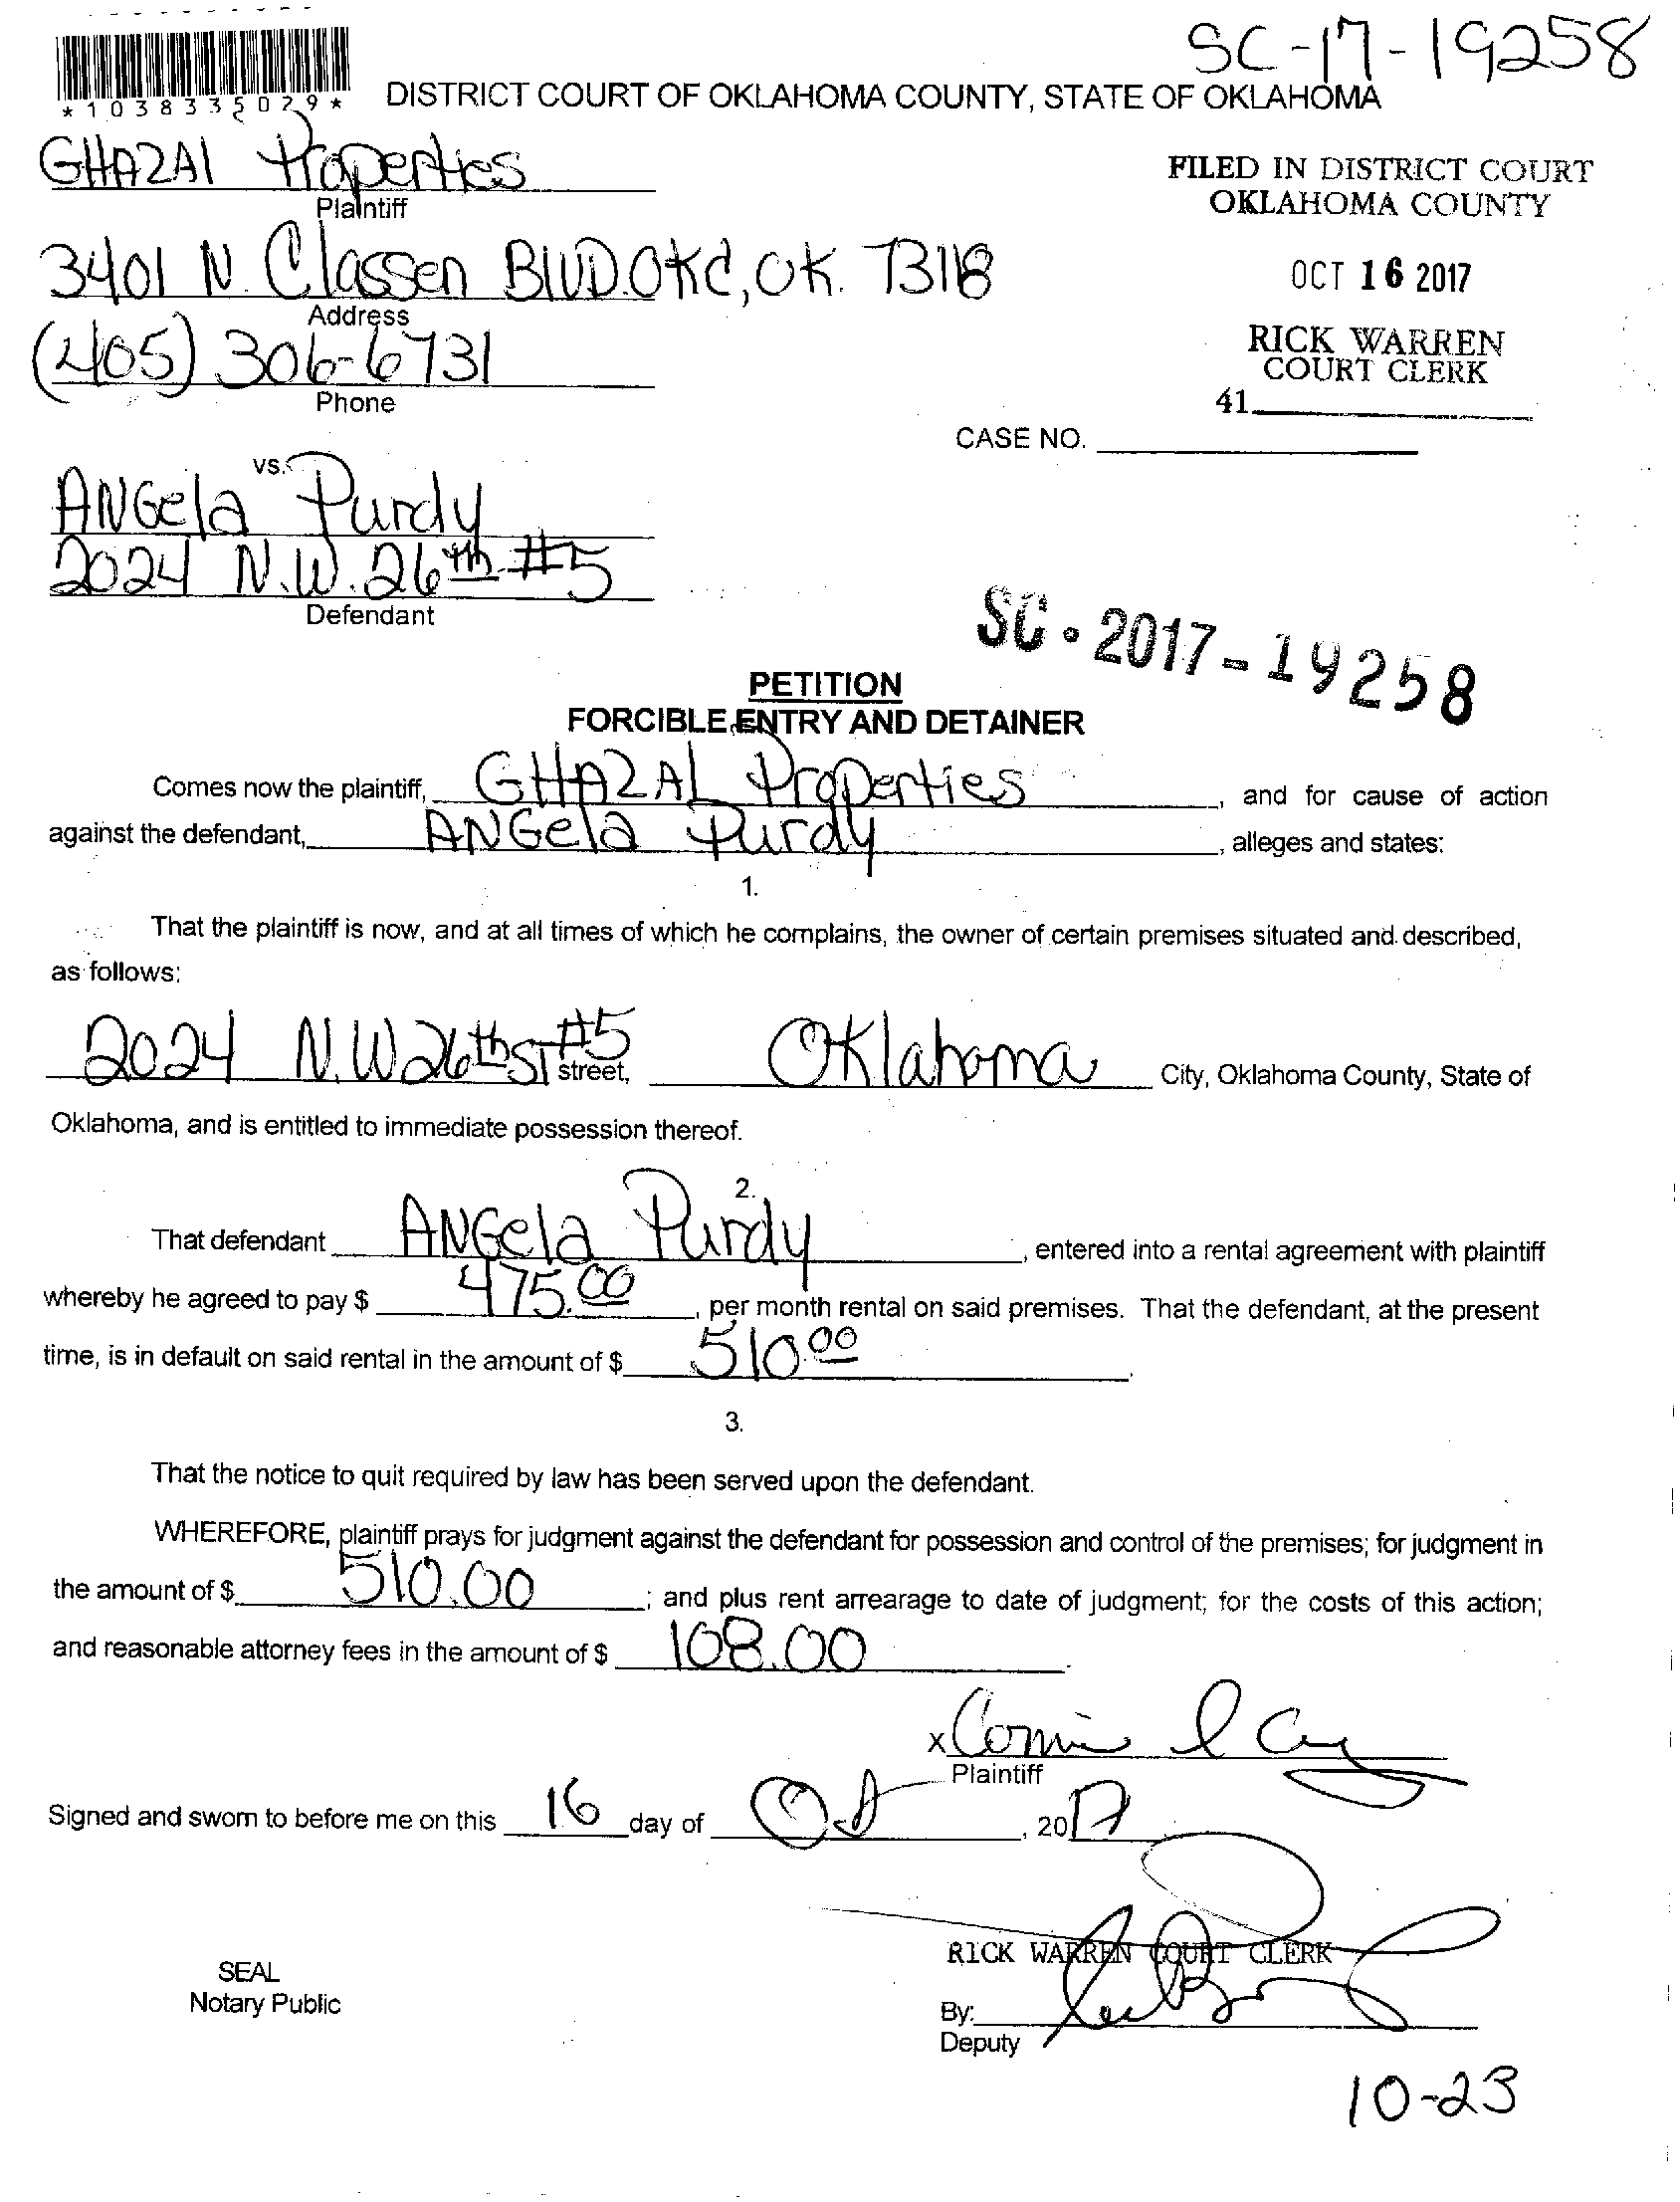 SC-17-19258
*1038335029*
DISTRICT COURT OF OKLAHOMA COUNTY, STATE OF OKLAHOMA
GHAZAl Properties
Plaintiff
FILED IN DISTRICT COURT
OKLAHOMA COUNTY
3401 N. Classen BlVD. OKC, OK. 73118
Address
OCT 16 2017
(405) 306-6731
Phone
RICK WARREN
COURT CLERK
41
CASE NO.
vs.
ANGela Purdy
2024 N.W. 26th #5
Defendant
SC-2017-19258
PETITION
FORCIBLE ENTRY AND DETAINER
Comes now the plaintiff, GHAZAL Properties, and for cause of action
against the defendant, ANGela Purdy, alleges and states:
1.
That the plaintiff is now, and at all times of which he complains, the owner of certain premises situated and described,
as follows:
2024 N.W 26th St #5 street, Oklahoma City, Oklahoma County, State of
Oklahoma, and is entitled to immediate possession thereof.
2.
That defendant ANGela Purdy, entered into a rental agreement with plaintiff
whereby he agreed to pay $ 475.00, per month rental on said premises. That the defendant, at the present
time, is in default on said rental in the amount of $ 510.00.
3.
That the notice to quit required by law has been served upon the defendant.
WHEREFORE, plaintiff prays for judgment against the defendant for possession and control of the premises; for judgment in
the amount of $ 510.00; and plus rent arrearage to date of judgment; for the costs of this action;
and reasonable attorney fees in the amount of $ 108.00.
x
Plaintiff
Signed and sworn to before me on this 16 day of Oct, 2017
RICK WARREN COURT CLERK
SEAL
Notary Public
By:
Deputy
10-23